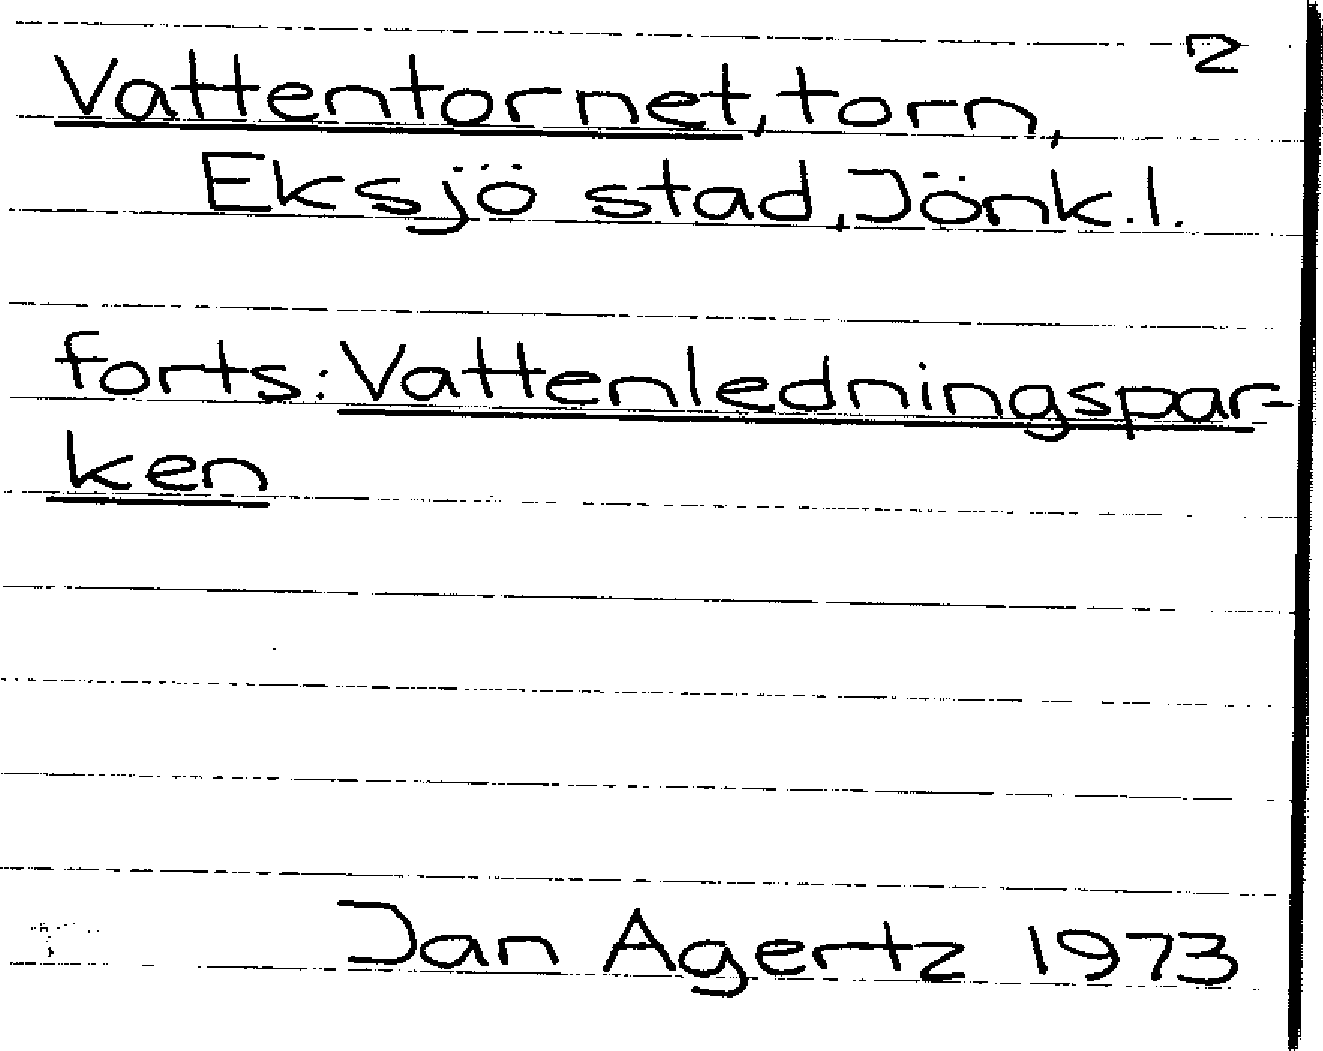 2
Vattentornet, torn,
Eksjö stad, Jönk.l.
forts: Vattenledningspar-
ken
Jan Agertz 1973